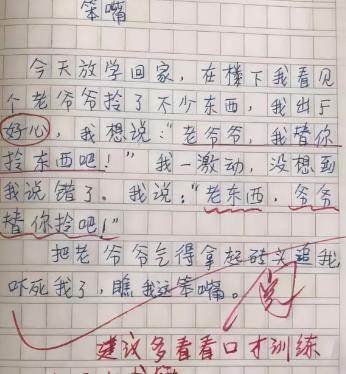 笨嘴
今天放学回家，在楼下我看见
个老爷爷拎了不少东西，我出于
好心，我想说："老爷爷，我替你
拎东西吧！"我一激动，没想到
我说错了。我说："老东西，爷爷
替你拎吧！"
把老爷爷气得拿起砖头追我
吓死我了，瞧我这笨嘴。
建议多看看口才训练